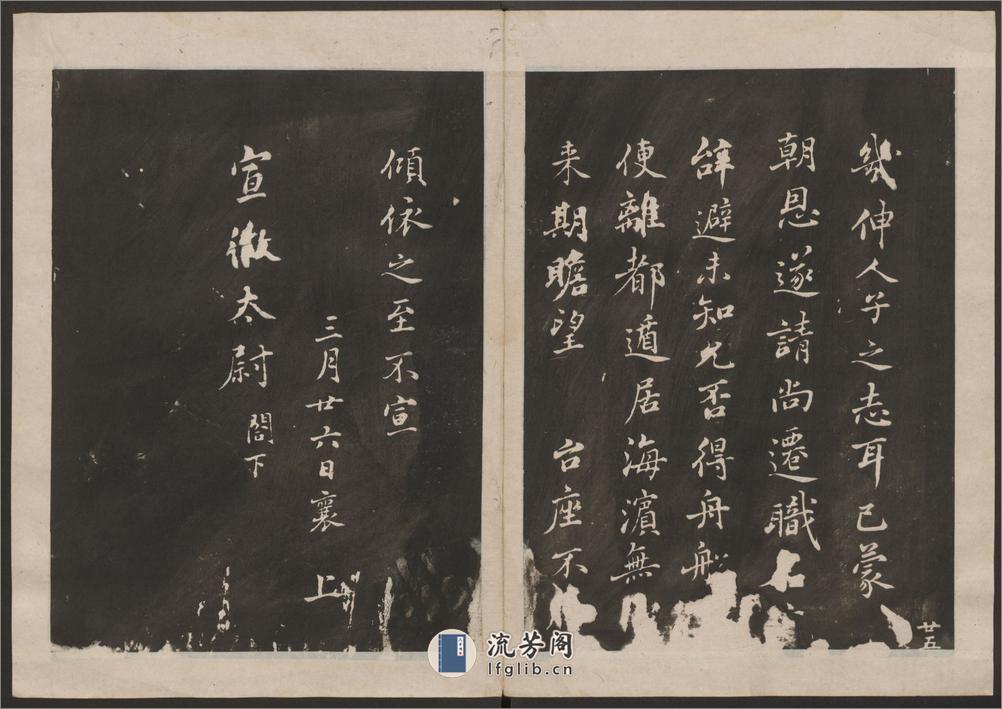 幾伸人子之志耳已蒙
朝恩遂請尚遷職
辞避未知允否得舟船
便離都遁居海濱無
来期瞻望 台座不
傾依之至不宣
三月廿六日襄 上
宣徽太尉 閤下
廿五
流芳阁
lfglib.cn